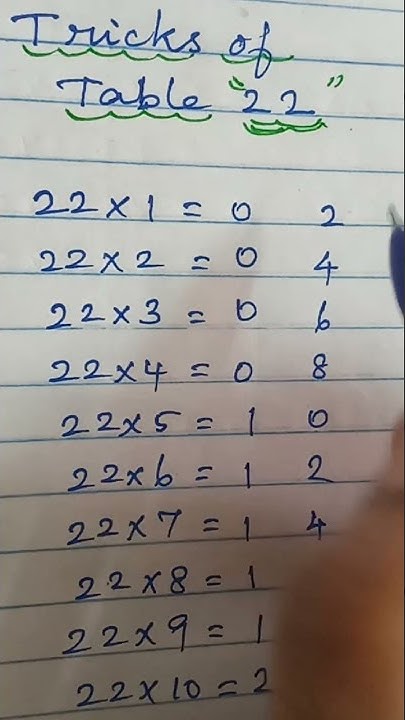 Tricks of
Table "22"
22 x 1 = 0 2
22 x 2 = 0 4
22 x 3 = 0 6
22 x 4 = 0 8
22 x 5 = 1 0
22 x 6 = 1 2
22 x 7 = 1 4
22 x 8 = 1
22 x 9 = 1
22 x 10 = 2